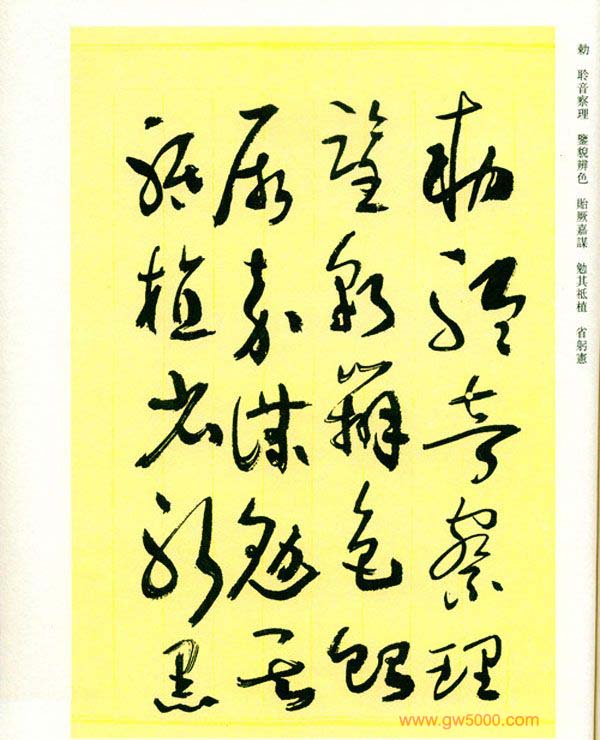 勅 聆音察理 鑒貌辨色 貽厥嘉謀 勉其祗植 省躬憲
勅聆音察理
鑒貌辨色貽
厥嘉謀勉其
祗植省躬
www.gw5000.com